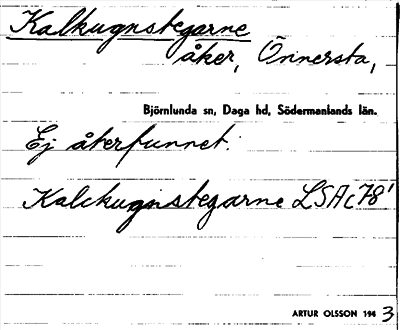 Kalkugnstegarne
åker, Önnersta,
Björnlunda sn, Daga hd, Södermanlands län.
Ej återfunnet:
Kalckugnstegarne LSAc78'
ARTUR OLSSON 1943